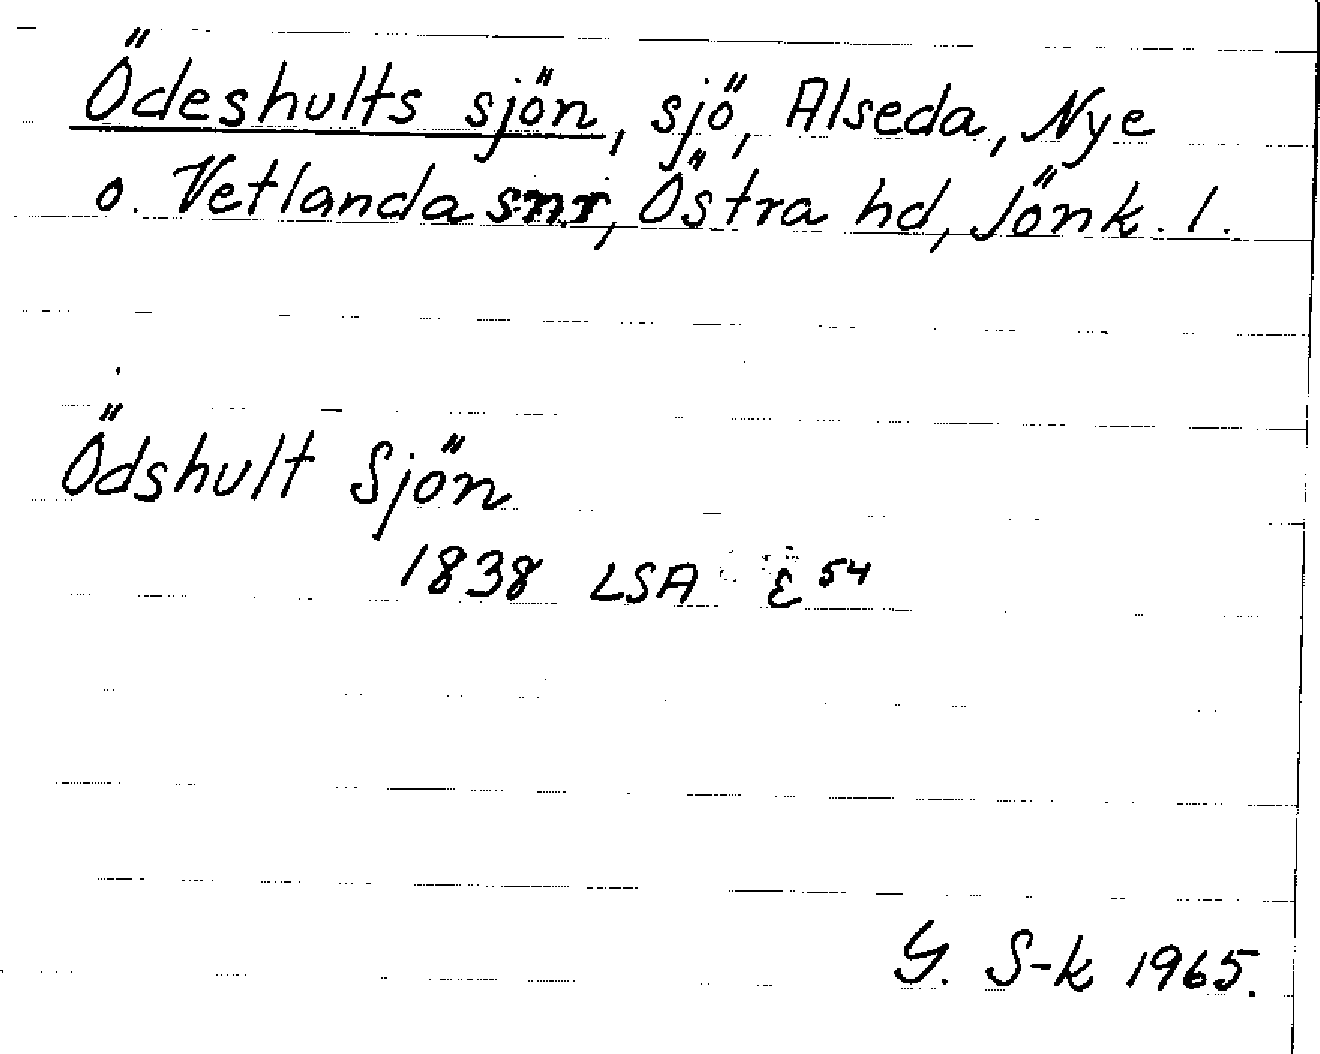 Ödeshults sjön, sjö, Alseda, Nye
o. Vetlanda snr, Östra hd, Jönk. l.
Ödshult Sjön
1838 LSA E 54
G. S-k 1965.